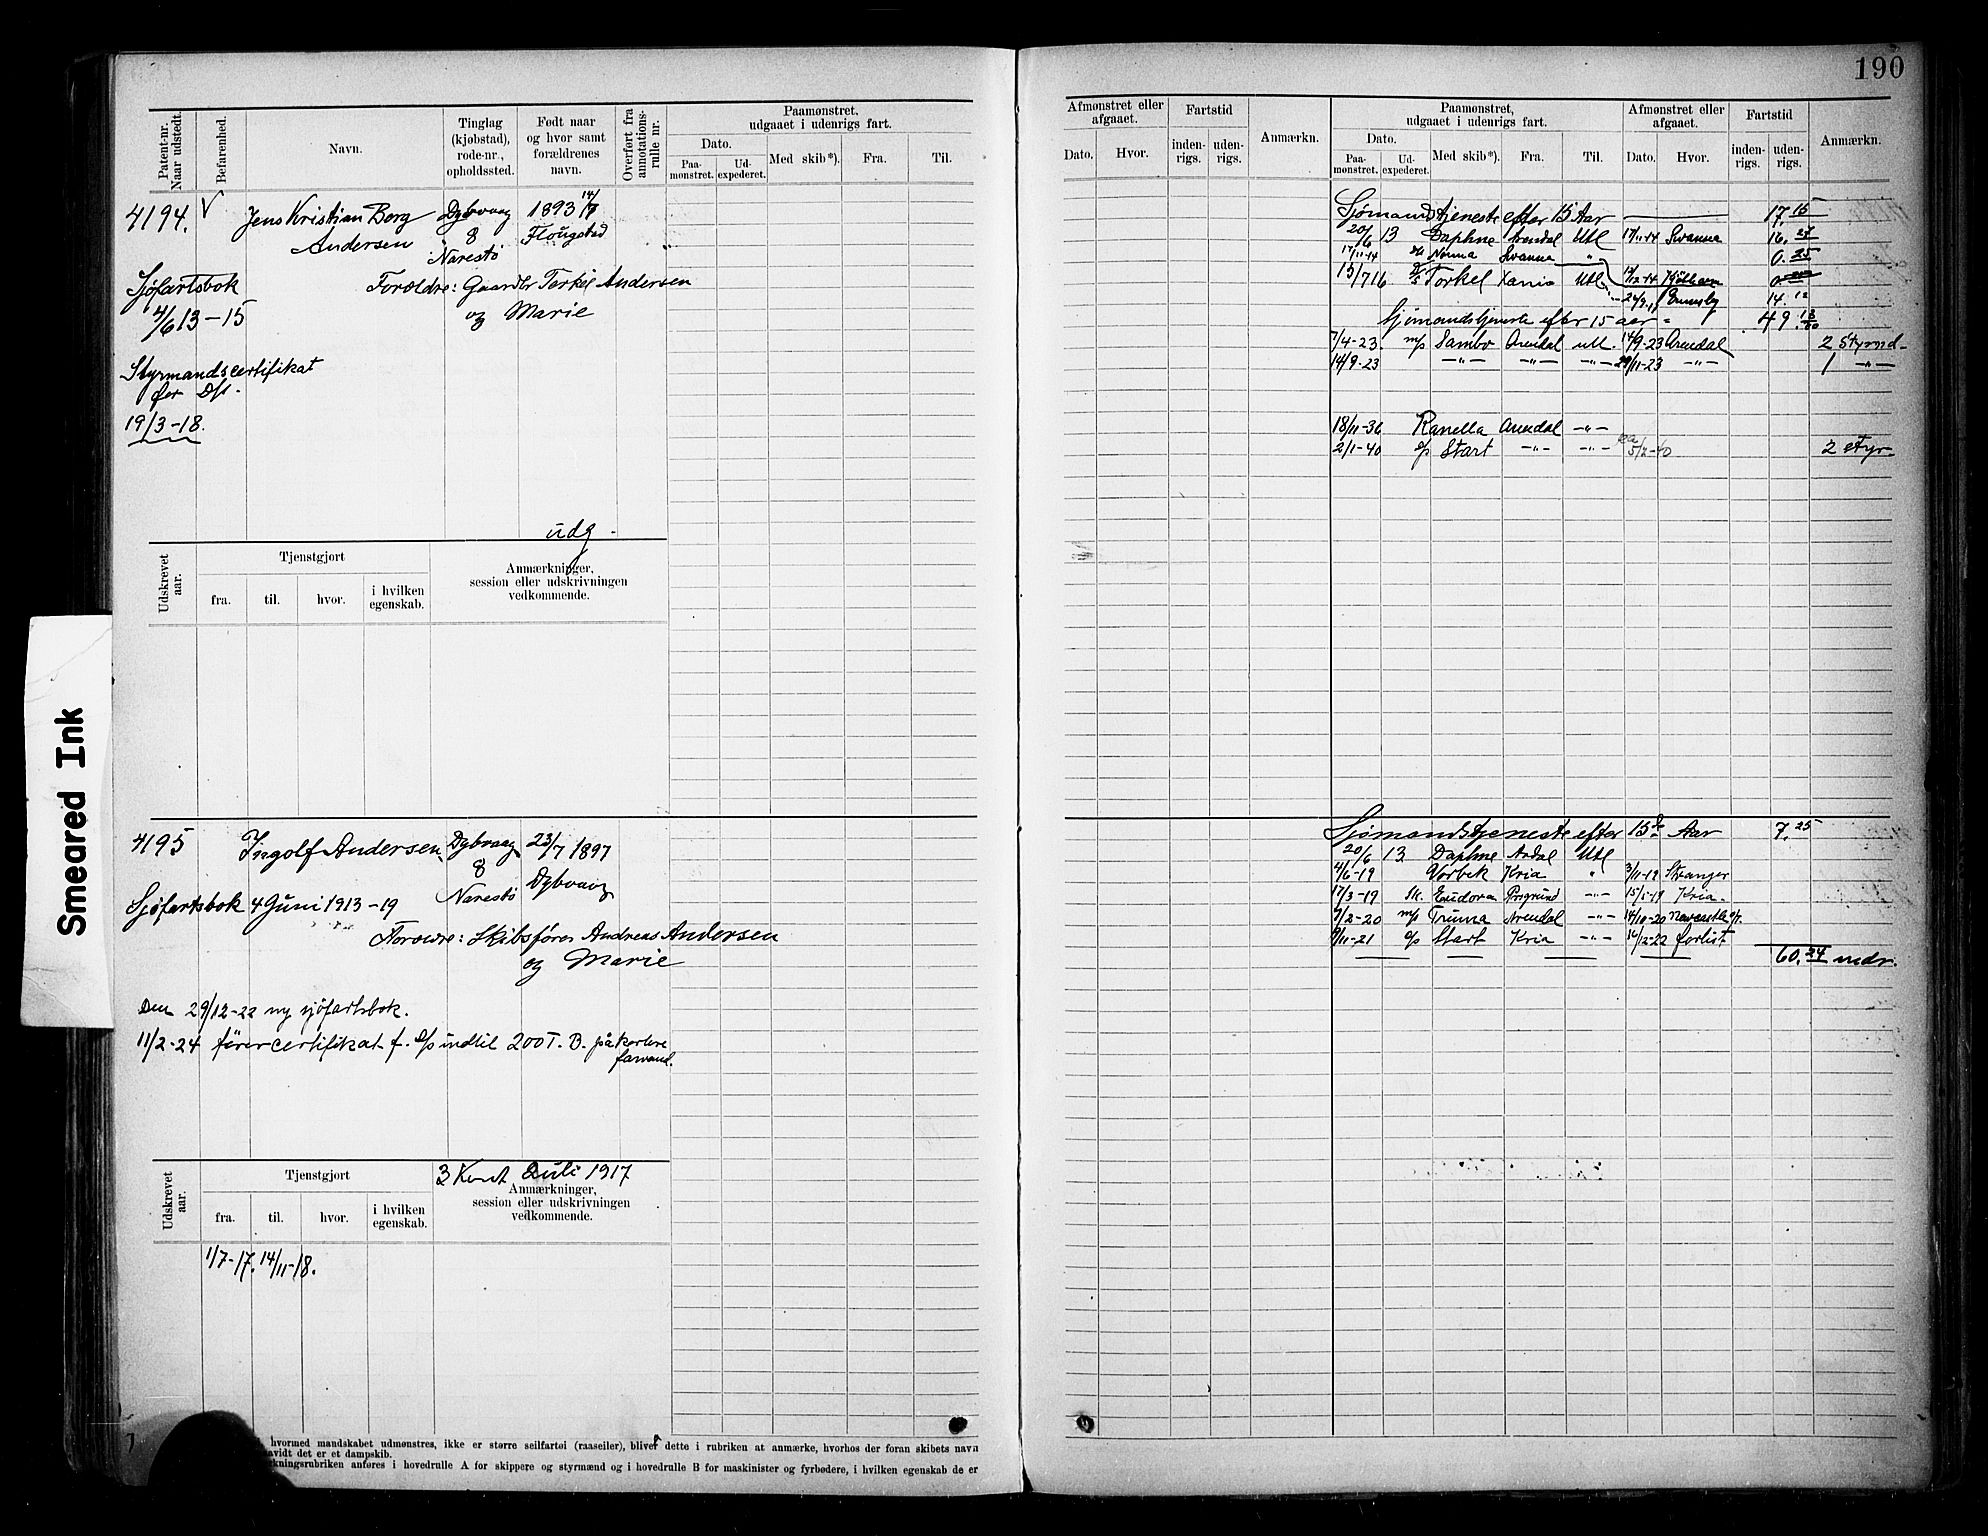 190
Patent-nr. Naar udstedt.
Befarenhed.
Navn.
Tinglag (kjøbstad), rode-nr., opholdssted.
Født naar og hvor samt forældrenes navn.
Overført fra annotations-rulle nr.
Paamønstret, udgaaet i udenrigs fart.
Dato.
Paa-mønstret.
Ud-expederet.
Med skib*).
Fra.
Til.
4194. V Jens Kristian Berg Dybvaag 1893 14/
Andersen 8 Flougstad
Narestø
Sjøfartsbok Forældre: Gaardbr Terkel Andersen
4/6 13-15 og Marie
Styrmandscertifikat
for D/s.
19/3-18.
udg.
Udskrevet aar.
Tjenstgjort
fra.
til.
hvor.
i hvilken egenskab.
Anmærkninger, session eller udskrivningen vedkommende.
4195 Ingolf Andersen Dybvaag 23/7 1897
8 Dybvaag
Narestø
Sjøfartsbok 4 Juni 1913-19
Forældre: Skibsfører Andreas Andersen
og Marie
Den 29/12-22 ny sjøfartsbok.
11/2-24 førercertifikat f. s/s indtil 200 T. B. på kortere
farvand.
Udskrevet aar.
Tjenstgjort
fra.
til.
hvor.
i hvilken egenskab.
Juli 1917
Anmærkninger, session eller udskrivningen vedkommende.
1/7-17. 14/11-18.
hvormed mandskabet udmønstres, ikke er større seilfartøi (raaseiler), bliver dette i rubriken at anmærke, hvorhos der foran skibets navn
avidt det er et dampskib.
rkningsrubriken anføres i hovedrulle A for skippere og styrmænd og i hovedrulle B for maskinister og fyrbødere, i hvilken egenskab de er
Afmønstret eller afgaaet.
Dato.
Hvor.
Fartstid
inden-rigs.
uden-rigs.
Anmærkn.
Paamønstret, udgaaet i udenrigs fart.
Dato.
Paa-mønstret.
Ud-expederet.
Med skib*).
Fra.
Til.
Afmønstret eller afgaaet.
Dato.
Hvor.
Fartstid
inden-rigs.
uden-rigs.
Anmærkn.
Sjømandstjeneste efter 15 Aar 17 15
20/6 13 Daphne Arendal Utl 17/11-14 Swansea 16. 27
17/11-14 Norma Swansea " 0. 25
15/7 16 D/s Torkel Xania Utl
14. 12
Sjømandstjeneste efter 15 aar 49
7/4-23. m/s Sambo Arendal utl. 14/9-23 Arendal 2 Styrmd.
14/9-23 -"- -"- -"- 29/11-23 -"- 1 -"-
18/11-36 Ranella Arendal -"-
2/1-40 s/s Start -"- -"- 5/2-40 2 styr.
Sjømandstjeneste efter 15 Aar 7. 25
20/6 13 Daphne Ardal Utl
4/6-19 Vorbek Kria " 3/11-19 Stranger
17/3-19 Eudora Porsgrund -"- 15/5-19 Kria.
7/2-20 m/s Truma Arendal -"- 14/10-20 Newcastle
9/11-21 s/s Start Kria -"- 16/12-22 forlist
60. 24 mdr.
Smeared Ink